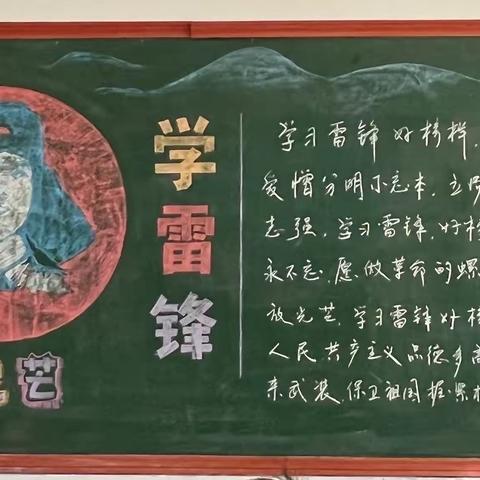 学雷锋
芒
学习雷锋好榜样,
爱憎分明不忘本,立场
志强,学习雷锋,好榜
永不忘,愿做革命的螺
放光芒,学习雷锋好榜
人民共产主义品德多高
来武装,保卫祖国握紧